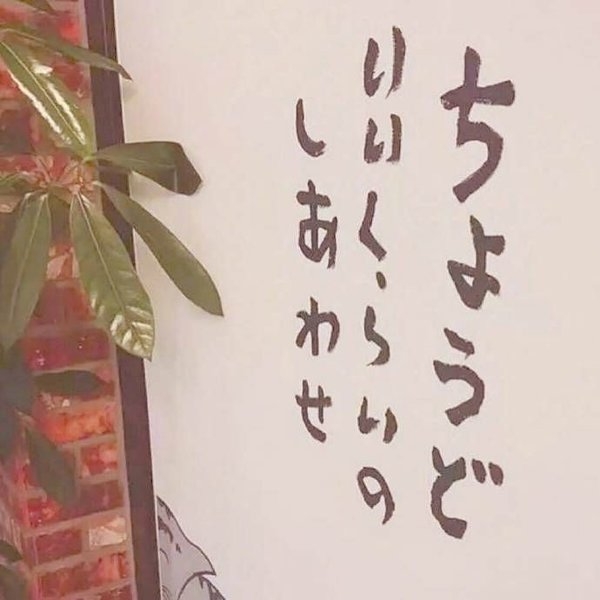 ちょうど
いいくらいの
しあわせ